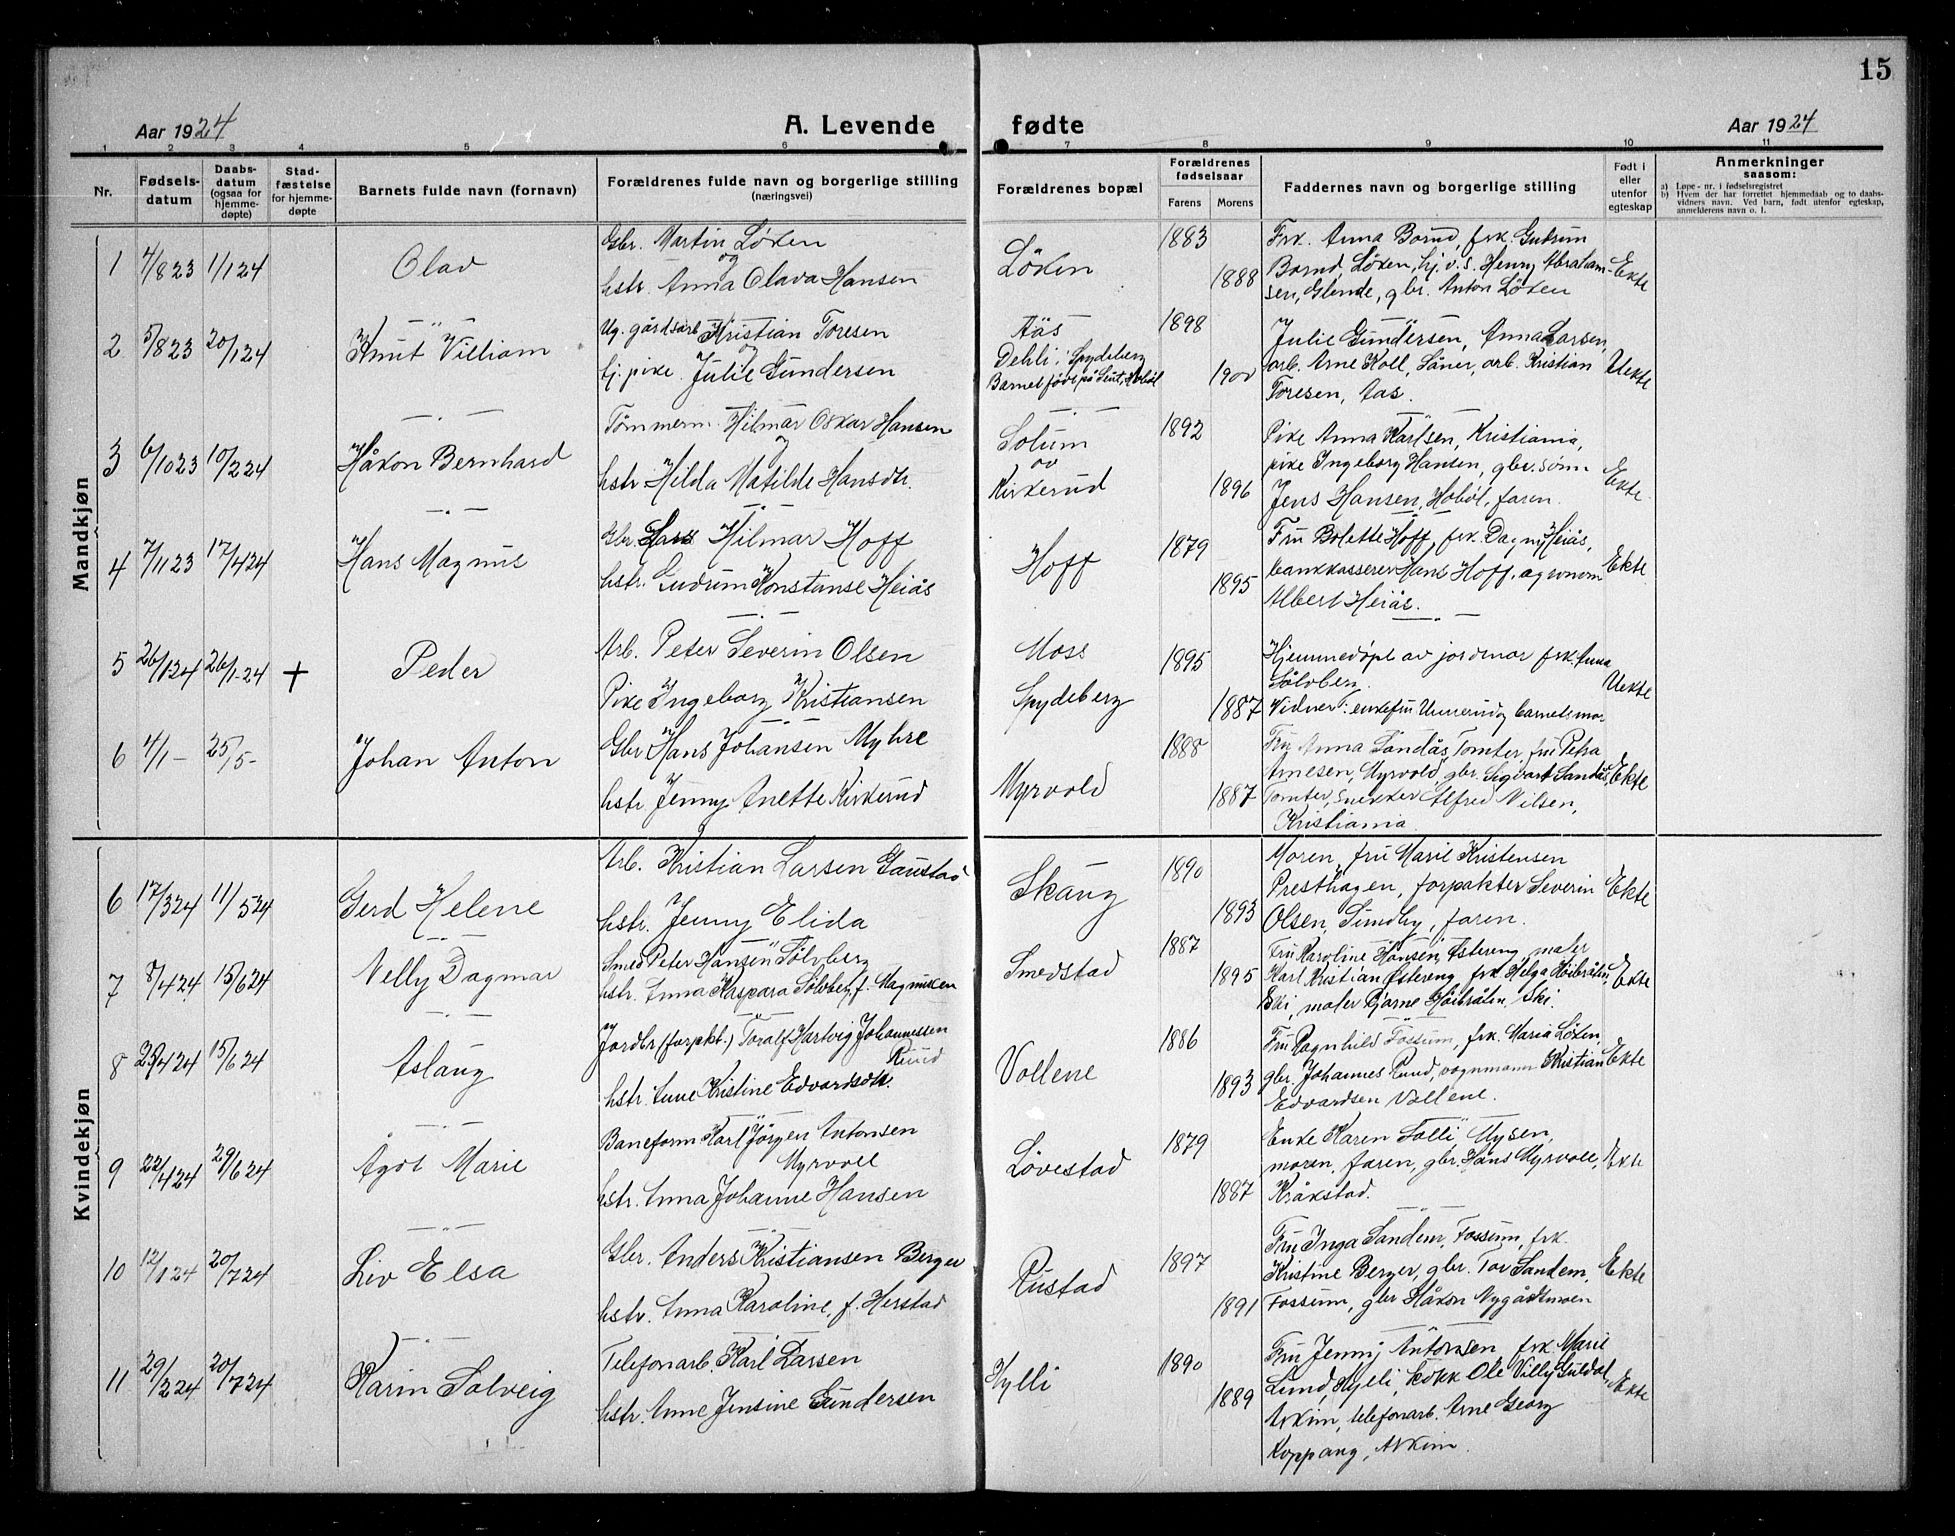 15
Aar 1924
A. Levende fødte
Aar 1924
1 2 3 4 5 6 7 8 9 10 11
Nr.
Fødsels-
datum
Daabs-
datum
(ogsaa for
hjemme-
døpte)
Stad-
fæstelse
for hjemme-
døpte
Barnets fulde navn (fornavn)
Forældrenes fulde navn og borgerlige stilling
(næringsvei)
Forældrenes bopæl
Forældrenes
fødselsaar
Farens
Morens
Faddernes navn og borgerlige stilling
Født i
eller
utenfor
egteskap
Anmerkninger
saasom:
a) Løpe-nr. i fødselsregistret
b) Hvem der har forrettet hjemmedaab og to daabs-
vidners navn. Ved barn, født utenfor egteskap,
anmelderens navn o. l.
Mandkjøn
1 4/8 23 1/1 24 Olav
Gbr. Martin Løken
og
hstr. Anna Olava Hansen
Løken
1883
1888
Frk. Anna Borud, frk. Gudrun
Borud, Løken, hj.v.s. Henry Abraham-
sen, Glende, gbr. Anton Løken
Ekte
2 5/8 23 20/1 24 Knut Villiam
Ug. gårdsarb. Kristian Toresen
og
hj. pike Julie Gundersen
Aas
Dehli i Spydeberg
Barnet født på Hobøl
1898
1900
Julie Gundersen, Anna Larsen,
arb. Arne Koll, Såner, arb. Kristian
Toresen, Aas.
Uekte
3 6/10 23 10/2 24 Håkon Bernhard
Tømmerm. Hilmar Oskar Hansen
og
hstr Hilda Matilde Hansdtr.
Solum
av
Kirkerud
1892
1896
Pike Anna Karlsen, Kristiania,
pike Ingeborg Hansen, gbr.sønn
Jens Hansen, Hobøl, faren.
Ekte
4 7/11 23 17/4 24 Hans Magnus
Gbr. Hans Hilmar Hoff
hstr. Gudrun Konstanse Heiås
Hoff
1879
1895
Fru Bolette Hoff, frk. Dagny Heiås,
bankkasserer Hans Hoff, agronom
Albert Heiås.
Ekte
5 26/1 24 26/1-24 + Peder
Arb. Peter Severin Olsen
Pike Ingeborg Kristiansen
Moss
Spydeberg
1895
1887
Hjemmedøpt av jordmor frk. Anna
Sølvberg.
Vidner: enkefru Unnerud og barnets mor
Uekte
6 4/1 - 25/5 - Johan Anton
Gbr Hans Johansen Myhre
hstr Jenny Anette Kirkerud
Myrvold
1888
1887
Fru Anna Sandås, Tomter, fru Petra
Arnesen, Myrvold, gbr. Sigvart Sandås,
Tomter, snekker Alfred Nilsen,
Kristiania.
Ekte
Kvindekjøn
6 17/3 24 11/5 24 Gerd Helene
Arb. Kristian Larsen Gaustad
hstr. Jenny Elida
Skaug
1890
1893
Moren, fru Marie Kristensen
Presthagen, forpakter Severin
Olsen, Sundby, faren.
Ekte
7 8/4 24 15/6 24 Nelly Dagmar
Smed Peter Hansen Sølvberg
hstr. Anna Kaspara Sølvbe, f. Magnussen
Smedstad
1887
1895
Fru Karoline Hansen Østereng, maler
Karl Kristian Østereng, frk. Helga Høibråten,
Ski, maler Bjarne Høibråten, Ski.
Ekte
8 4 24 15/6 24 Aslaug
Jordbr (forpakt.) Toralf Hartvig Johannessen
Ruud
hstr. Anne Kristine Edvardsdtr.
Vollene
1886
1893
Fru Ragnhild Fossum, frk. Maria Løken,
gbr. Johannes Ruud, vognmann Kristian
Edvardsen Vollene.
Ekte
9 22/4 24 29/6 24 Ågot Marie
Baneform. Karl Jörgen Antonsen
Myrvoll
hstr. Anna Johanne Hansen
Løvestad
1879
1887
Enke Karen Solli, Mysen,
moren, faren, gbr. Hans Myrvoll,
Kråkstad.
Ekte
10 12/1 24 20/7 24 Liv Elsa
Gbr. Anders Kristiansen Berger
hstr. Anna Karoline, f. Herstad
Rustad
1897
1891
Fru Inga Sandem, Fossum, frk.
Kristine Berger, gbr. Tov Sandem,
Fossum, gbr Håkon Nygårdsmoen
Ekte
11 29/2 24 20/7 24 Karin Solveig
Telefonarb. Karl Larsen
hstr. Anne Jensine Gundersen
Hylli
1890
1889
Fru Jenny Antonsen, frk. Marie
Lund, Hylli, kokk Ole Villy Guldal,
Askim, telefonarb. Arne Georg
Koppang, Askim.
Ekte